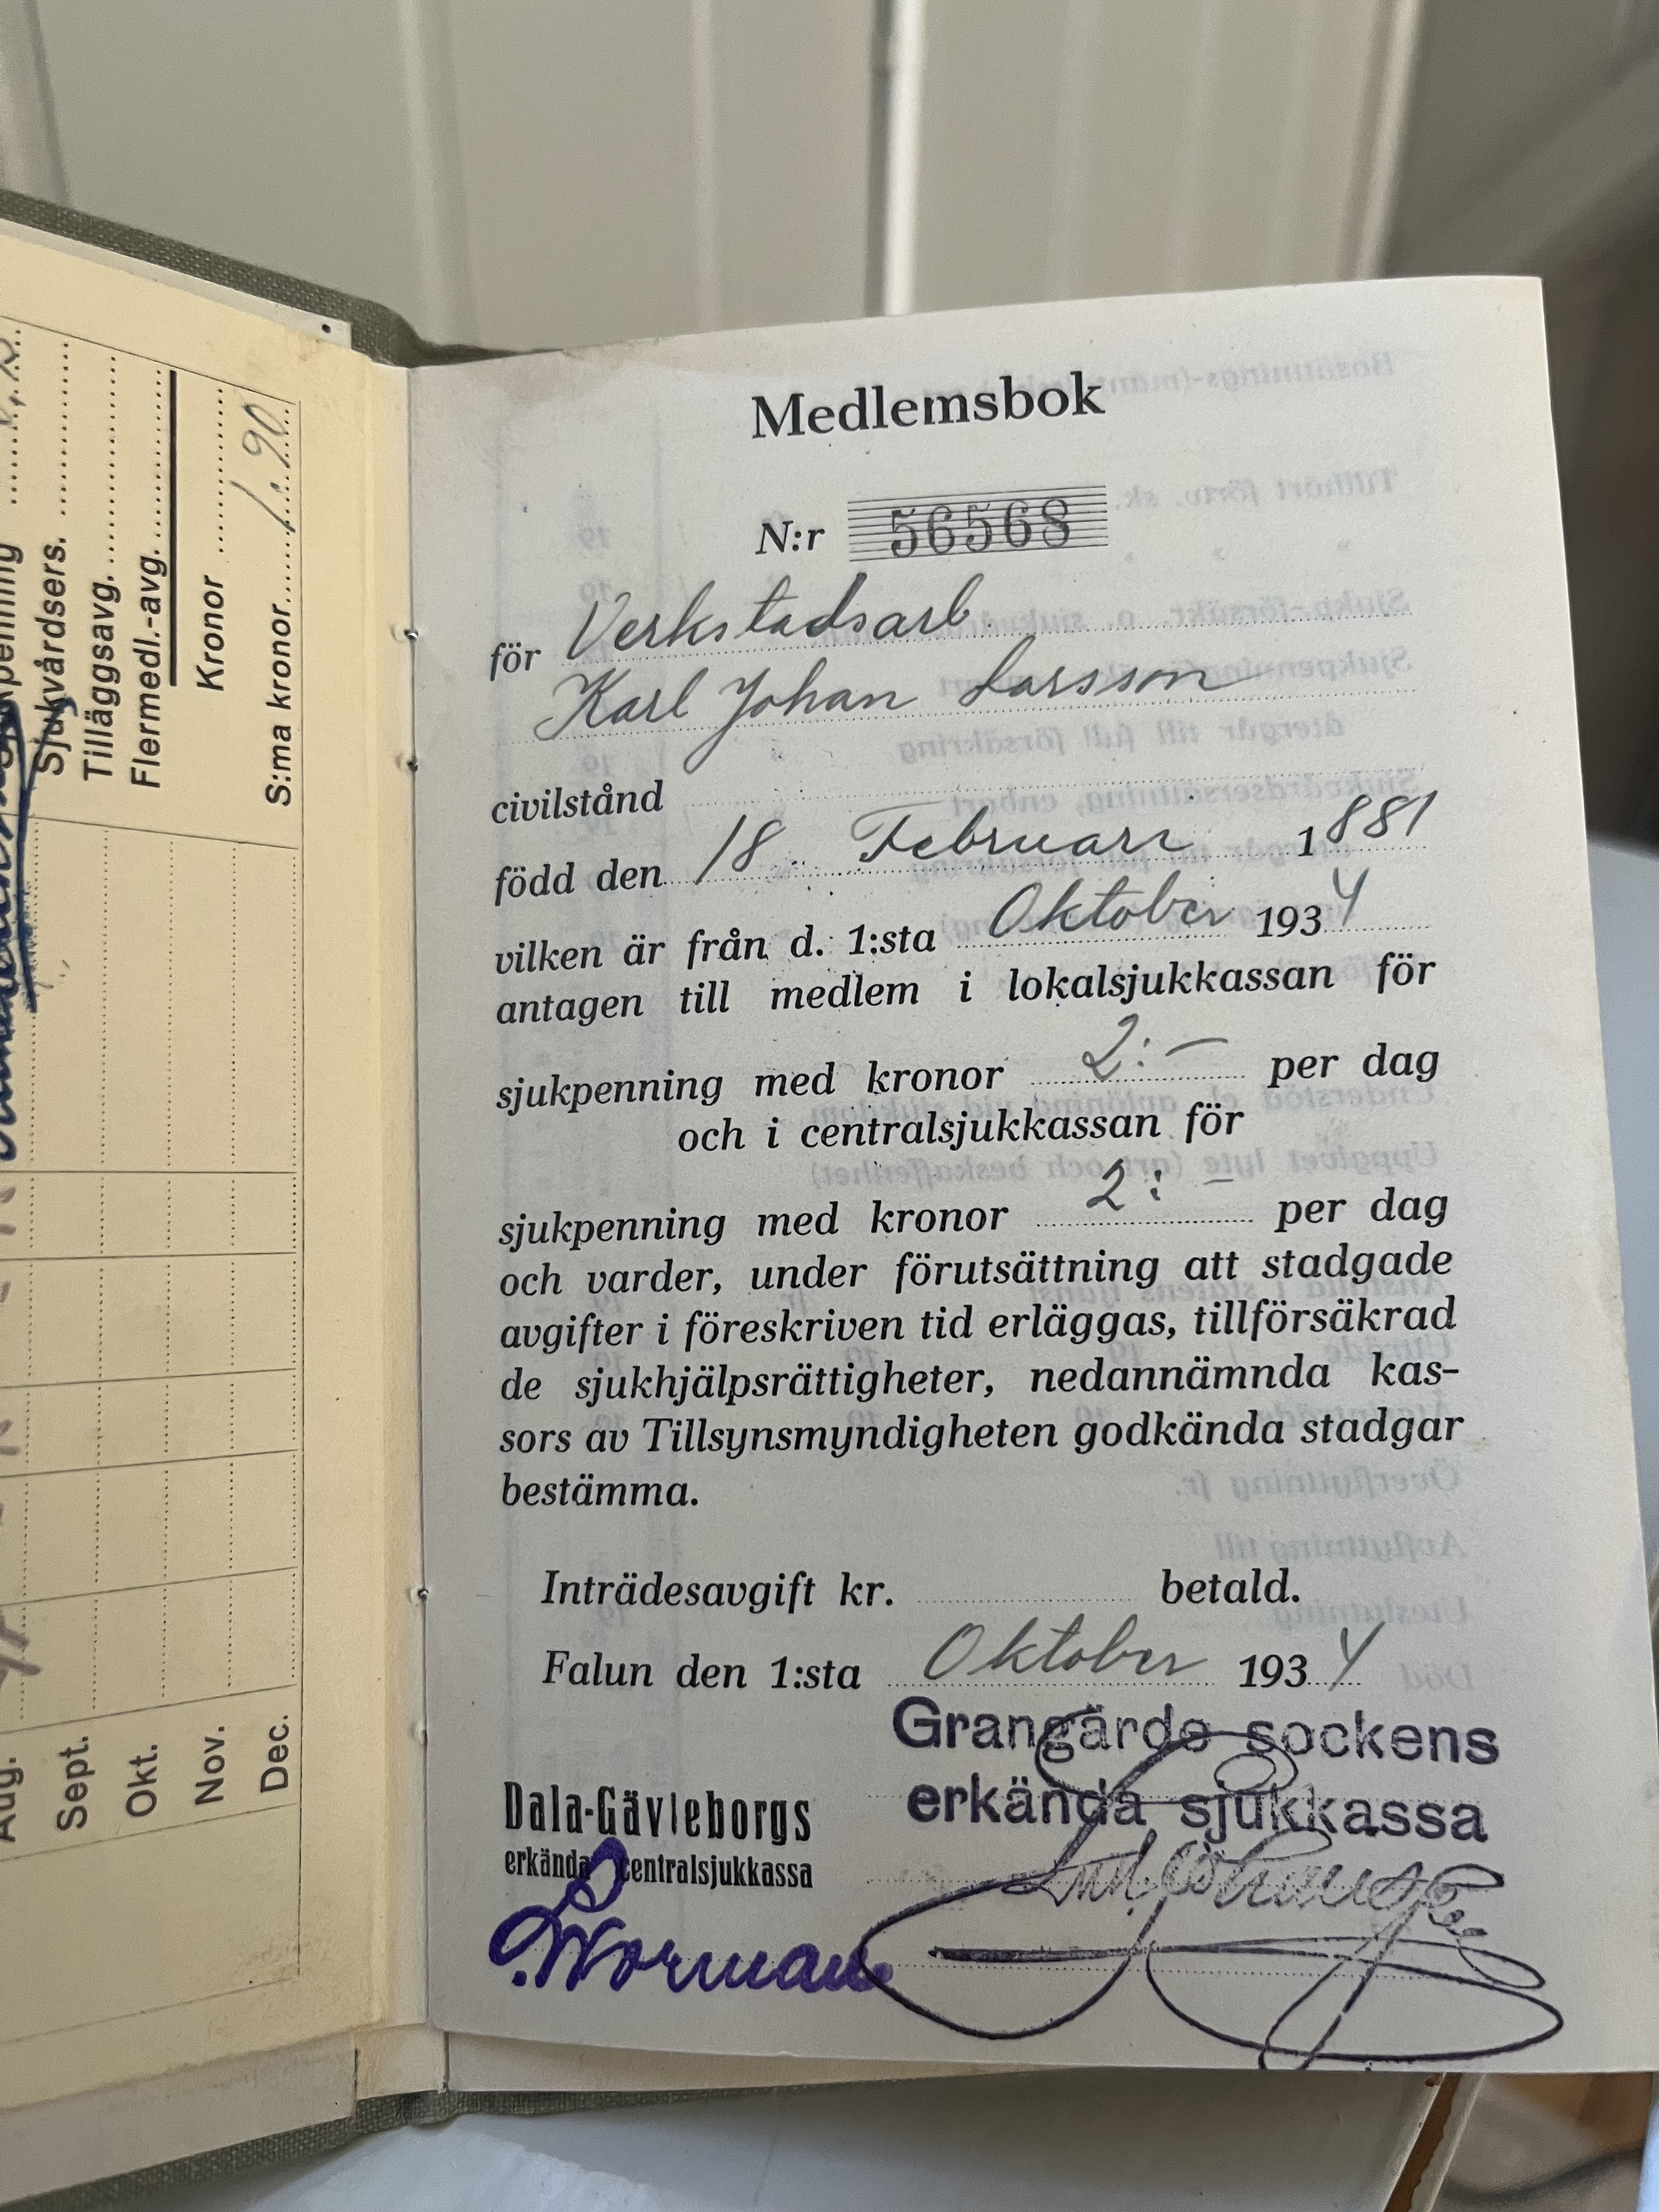 Sjukvårdsers.
Tilläggsavg.
Flermedl.-avg.
Kronor
S:ma kronor 1.90
Aug.
Sept.
Okt.
Nov.
Dec.
Medlemsbok
N:r 56568
för Verkstadsarb.
Karl Johan Larsson
civilstånd
född den 18 Februari 1881
vilken är från d. 1:sta Oktober 1934
antagen till medlem i lokalsjukkassan för
sjukpenning med kronor 2:- per dag
och i centralsjukkassan för
sjukpenning med kronor 2:- per dag
och varder, under förutsättning att stadgade
avgifter i föreskriven tid erläggas, tillförsäkrad
de sjukhjälpsrättigheter, nedannämnda kas-
sors av Tillsynsmyndigheten godkända stadgar
bestämma.
Inträdesavgift kr. betald.
Falun den 1:sta Oktober 1934
Grangärde sockens
erkända sjukkassa
Dala-Gävleborgs
erkända centralsjukkassa
Norman